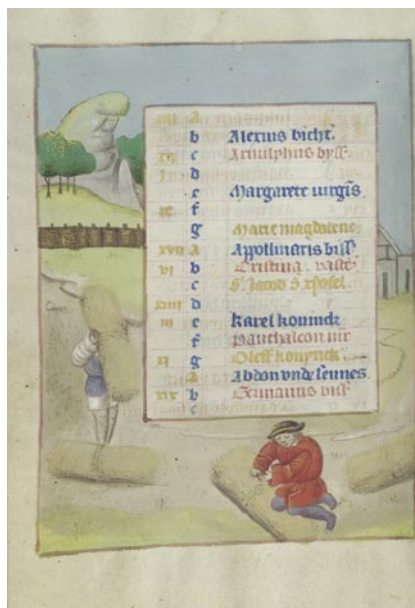 A
b Alexius bicht.
c Arnulphus byss
i d
e Margarete virgis
ix f
g Marie magdalene
xvii A Appollinaris biss
vi b Cristina . vaste
c S. Jacob S
xiiii d
iii e Karel koninck
f Panthaleon mr
xi g Oleff konynck
A Abdon vnde sennes
xix b Germanus biss
c